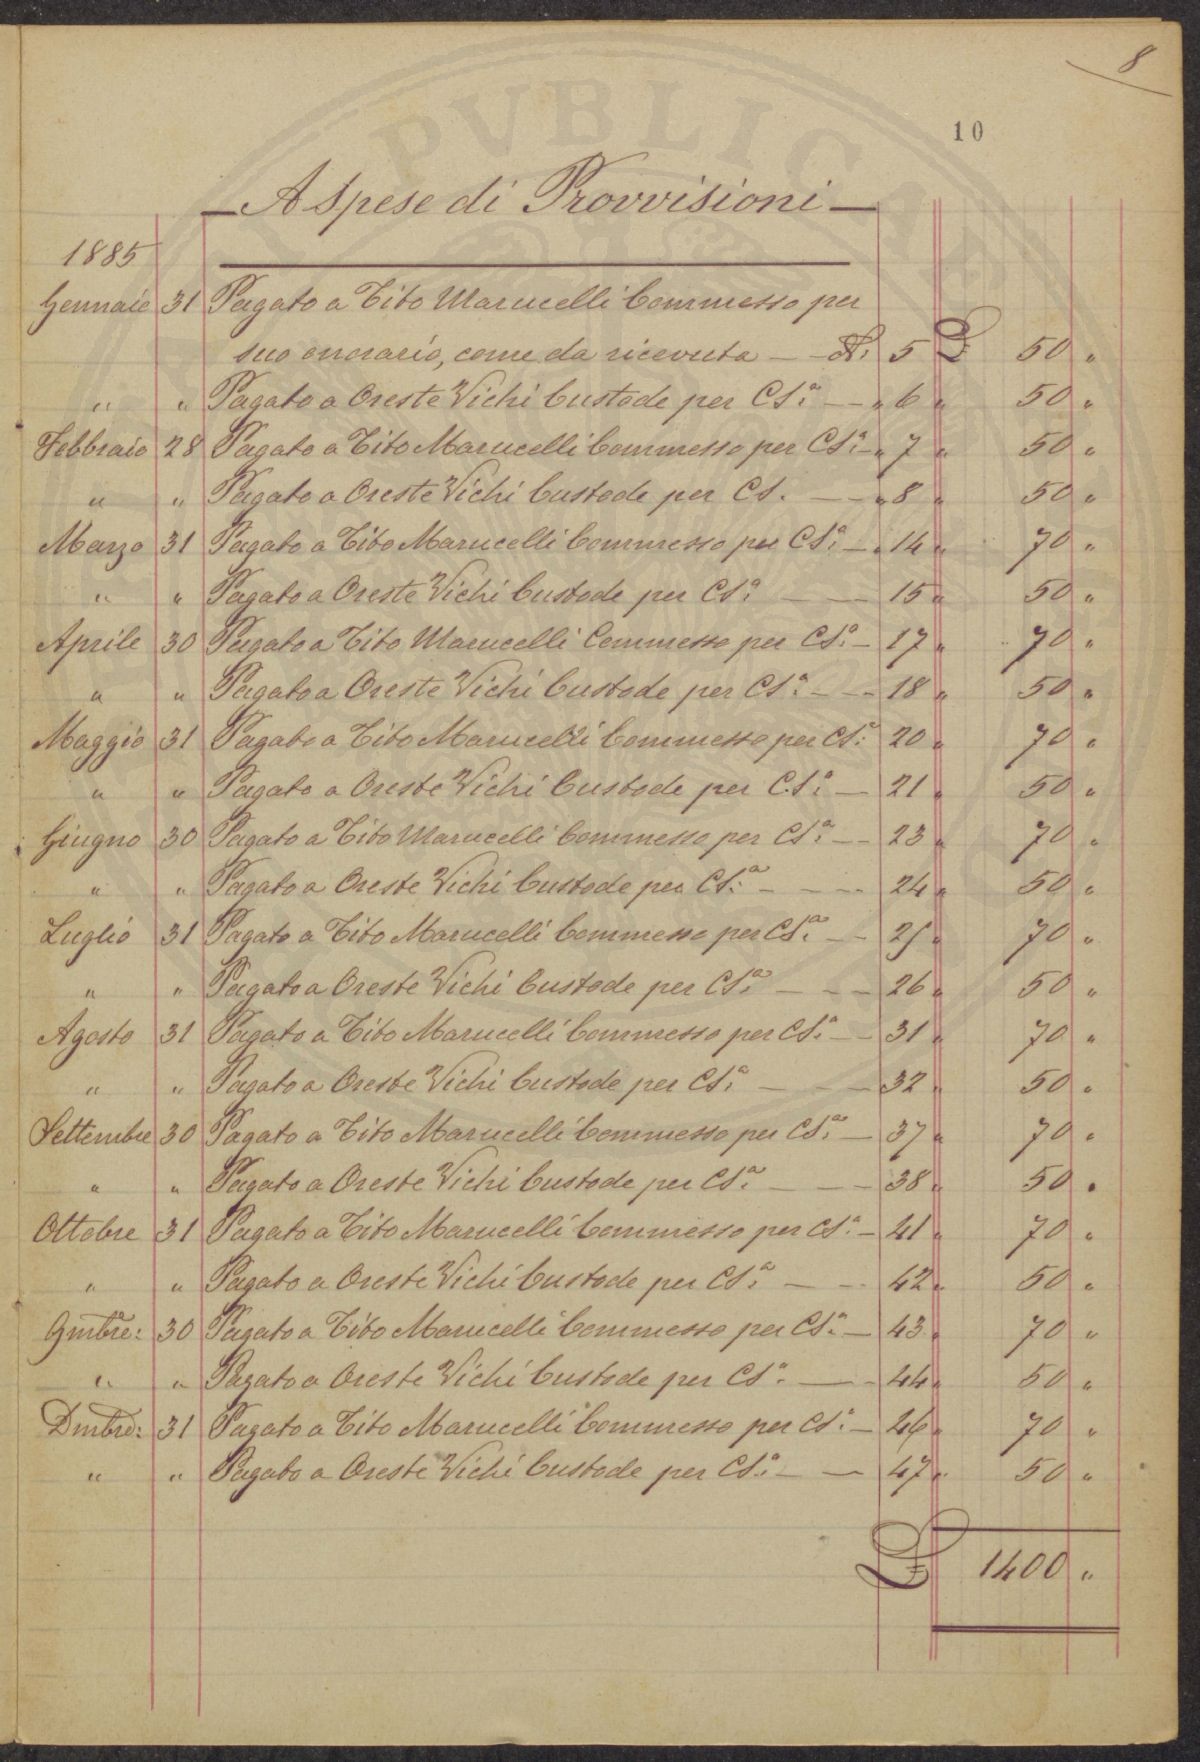 8
10
PVBLIC
A Spese di Provvisioni
1885
Gennaio 31 Pagato a Tito Marucelli Commesso per
suo onorario, come da ricevuta — N: 5 £ 50 "
" " Pagato a Oreste Vichi Custode per CS.a — " 6 " 50 "
Febbraio 28 Pagato a Tito Marucelli Commesso per CS.a — " 7 " 50 "
" " Pagato a Oreste Vichi Custode per CS. — " 8 " 50 "
Marzo 31 Pagato a Tito Marucelli Commesso per CS.a — " 14 " 70 "
" " Pagato a Oreste Vichi Custode per CS.a — 15 " 50 "
Aprile 30 Pagato a Tito Marucelli Commesso per CS.a — 17 " 70 "
" " Pagato a Oreste Vichi Custode per CS.a — 18 " 50 "
Maggio 31 Pagato a Tito Marucelli Commesso per CS.a 20 " 70 "
" " Pagato a Oreste Vichi Custode per CS.a — 21 " 50 "
Giugno 30 Pagato a Tito Marucelli Commesso per CS.a — 23 " 70 "
" " Pagato a Oreste Vichi Custode per CS.a — 24 " 50 "
Luglio 31 Pagato a Tito Marucelli Commesso per CS.a — 25 " 70 "
" " Pagato a Oreste Vichi Custode per CS.a — 26 " 50 "
Agosto 31 Pagato a Tito Marucelli Commesso per CS.a — 31 " 70 "
" " Pagato a Oreste Vichi Custode per CS.a — 32 " 50 "
Settembre 30 Pagato a Tito Marucelli Commesso per CS.a — 37 " 70 "
" " Pagato a Oreste Vichi Custode per CS.a — 38 " 50 "
Ottobre 31 Pagato a Tito Marucelli Commesso per CS.a — 41 " 70 "
" " Pagato a Oreste Vichi Custode per CS.a — 42 " 50 "
9mbre: 30 Pagato a Tito Marucelli Commesso per CS.a — 43 " 70 "
" " Pagato a Oreste Vichi Custode per CS.a — 44 " 50 "
Dmbre: 31 Pagato a Tito Marucelli Commesso per CS.a — 46 " 70 "
" " Pagato a Oreste Vichi Custode per CS.a — 47 " 50 "
£ 1400 "